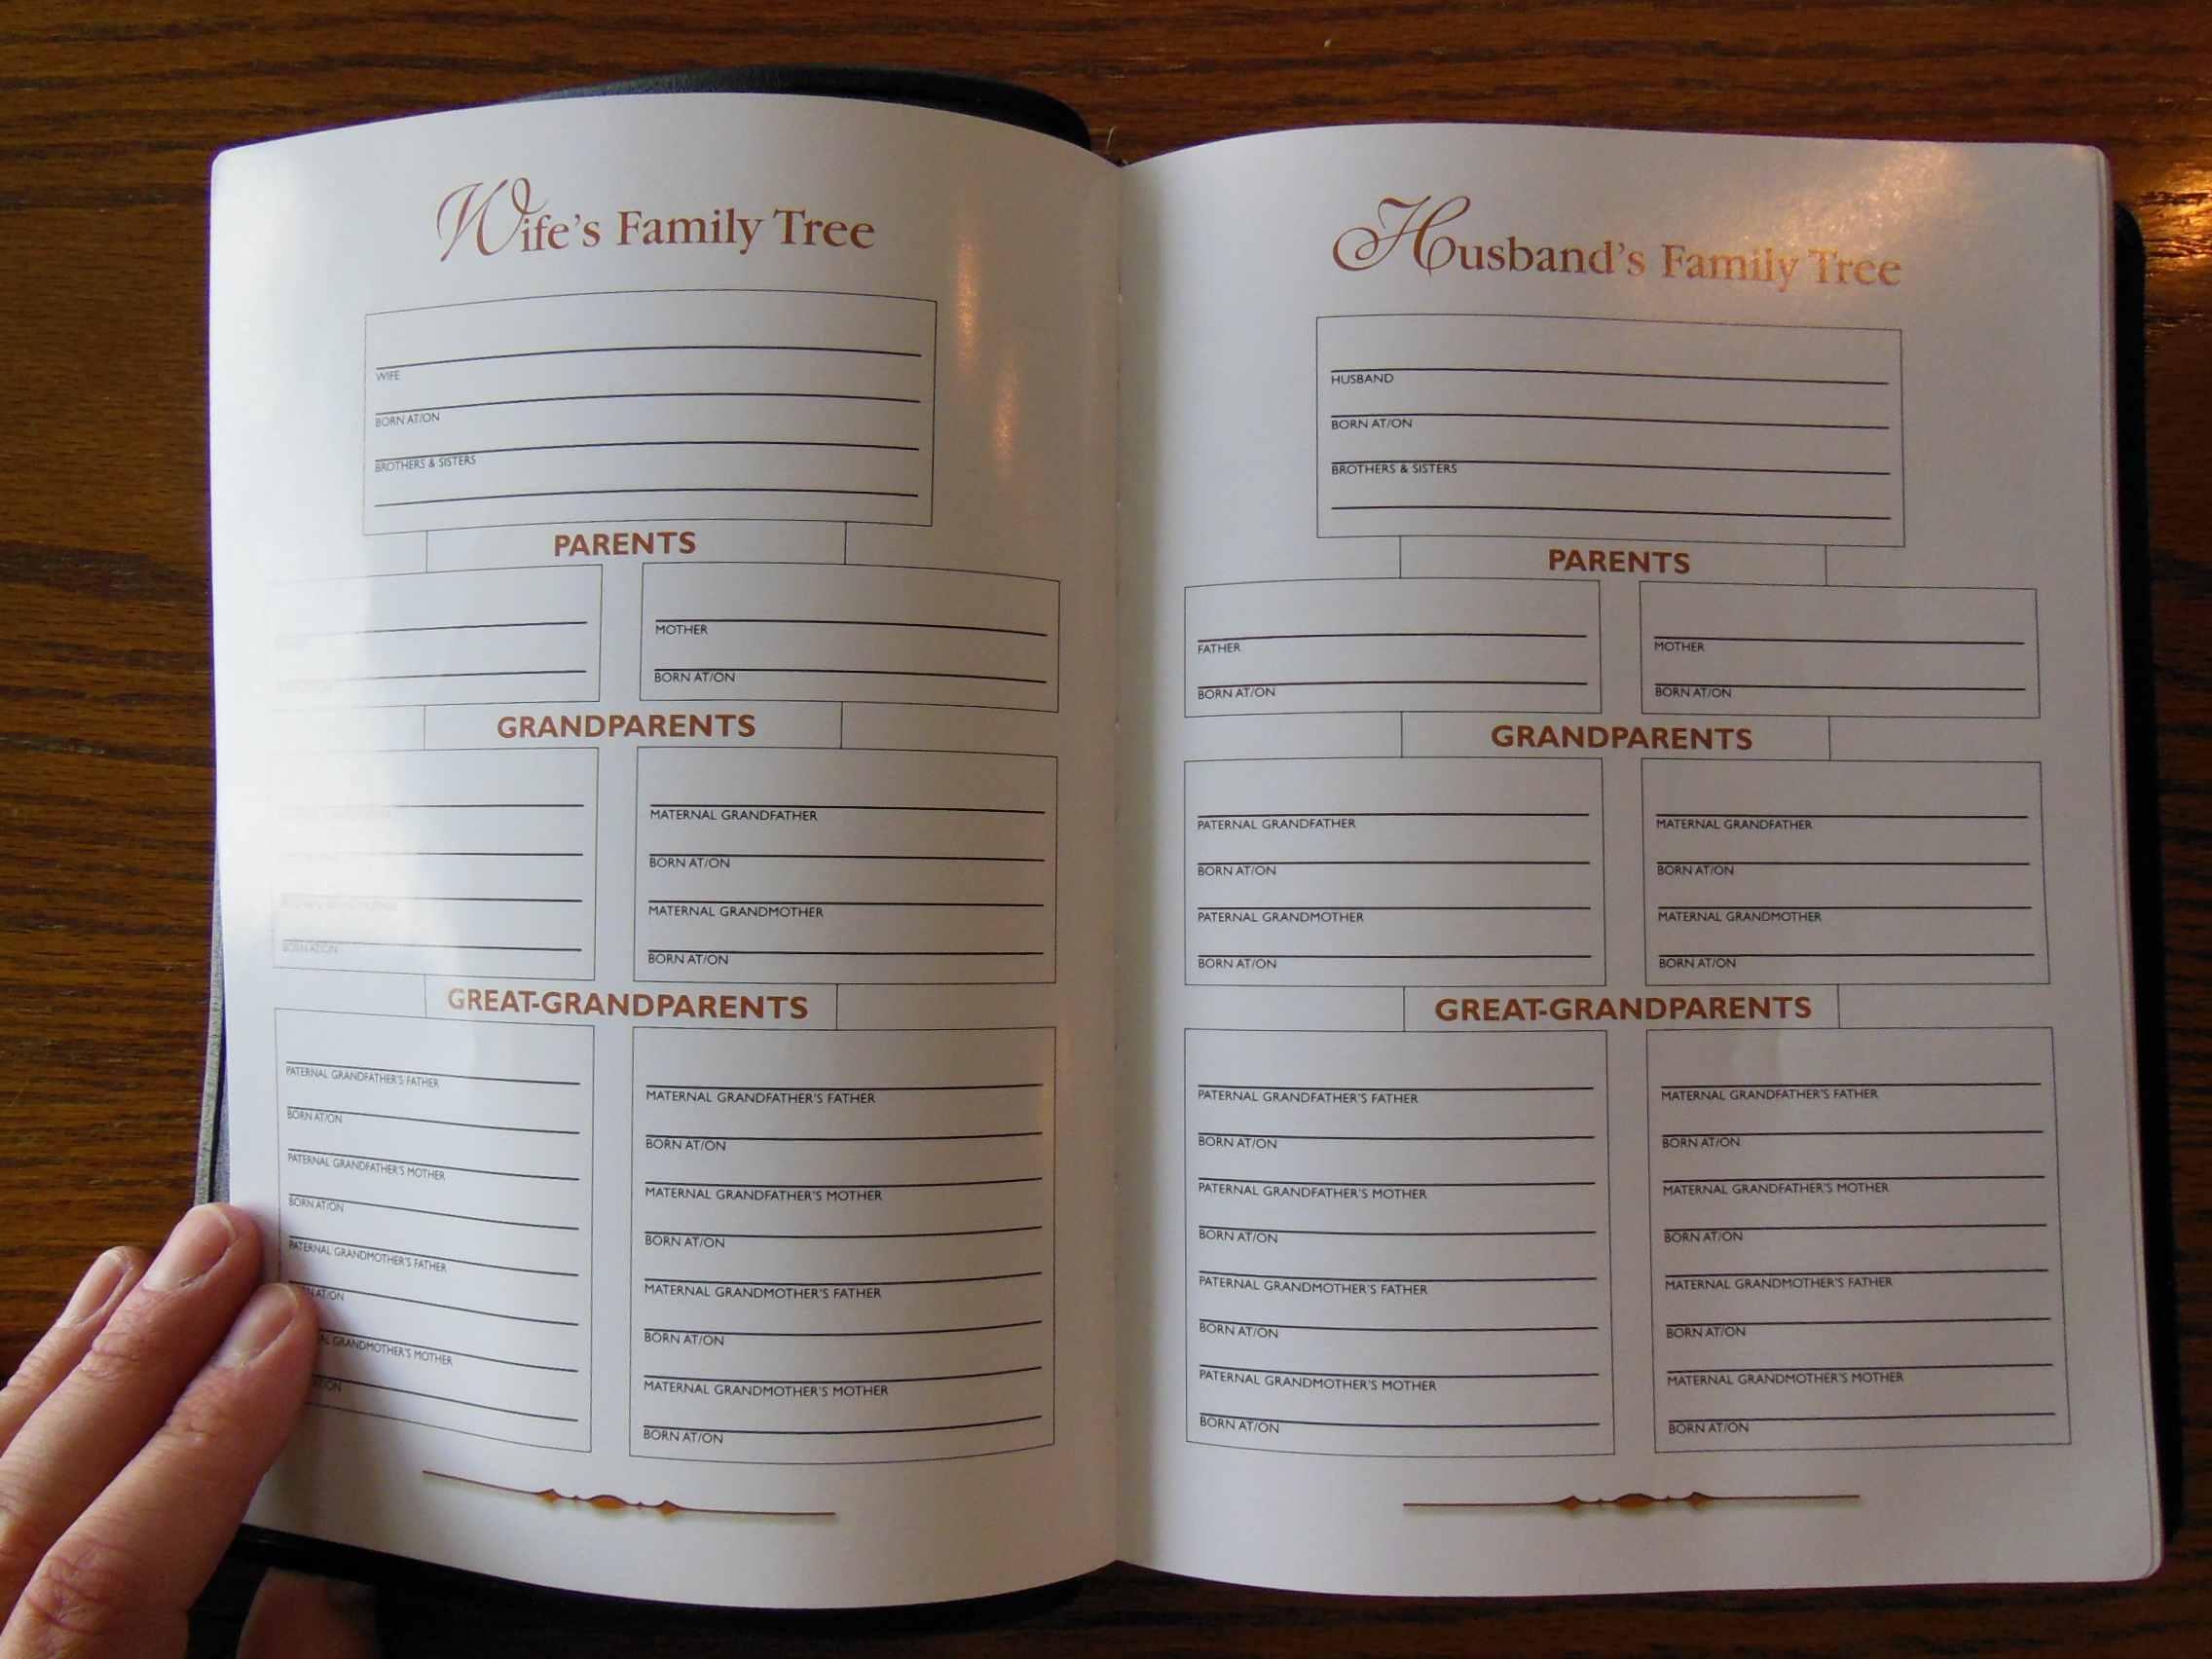 Wife's Family Tree
WIFE
BORN AT/ON
BROTHERS & SISTERS
PARENTS
MOTHER
BORN AT/ON
GRANDPARENTS
BORN AT/ON
MATERNAL GRANDFATHER
BORN AT/ON
MATERNAL GRANDMOTHER
BORN AT/ON
GREAT-GRANDPARENTS
PATERNAL GRANDFATHER'S FATHER
BORN AT/ON
PATERNAL GRANDFATHER'S MOTHER
BORN AT/ON
PATERNAL GRANDMOTHER'S FATHER
AT/ON
GRANDMOTHER'S MOTHER
MATERNAL GRANDFATHER'S FATHER
BORN AT/ON
MATERNAL GRANDFATHER'S MOTHER
BORN AT/ON
MATERNAL GRANDMOTHER'S FATHER
BORN AT/ON
MATERNAL GRANDMOTHER'S MOTHER
BORN AT/ON
Husband's Family Tree
HUSBAND
BORN AT/ON
BROTHERS & SISTERS
PARENTS
FATHER
BORN AT/ON
MOTHER
BORN AT/ON
GRANDPARENTS
PATERNAL GRANDFATHER
BORN AT/ON
PATERNAL GRANDMOTHER
BORN AT/ON
MATERNAL GRANDFATHER
BORN AT/ON
MATERNAL GRANDMOTHER
BORN AT/ON
GREAT-GRANDPARENTS
PATERNAL GRANDFATHER'S FATHER
BORN AT/ON
PATERNAL GRANDFATHER'S MOTHER
BORN AT/ON
PATERNAL GRANDMOTHER'S FATHER
BORN AT/ON
PATERNAL GRANDMOTHER'S MOTHER
BORN AT/ON
MATERNAL GRANDFATHER'S FATHER
BORN AT/ON
MATERNAL GRANDFATHER'S MOTHER
BORN AT/ON
MATERNAL GRANDMOTHER'S FATHER
BORN AT/ON
MATERNAL GRANDMOTHER'S MOTHER
BORN AT/ON